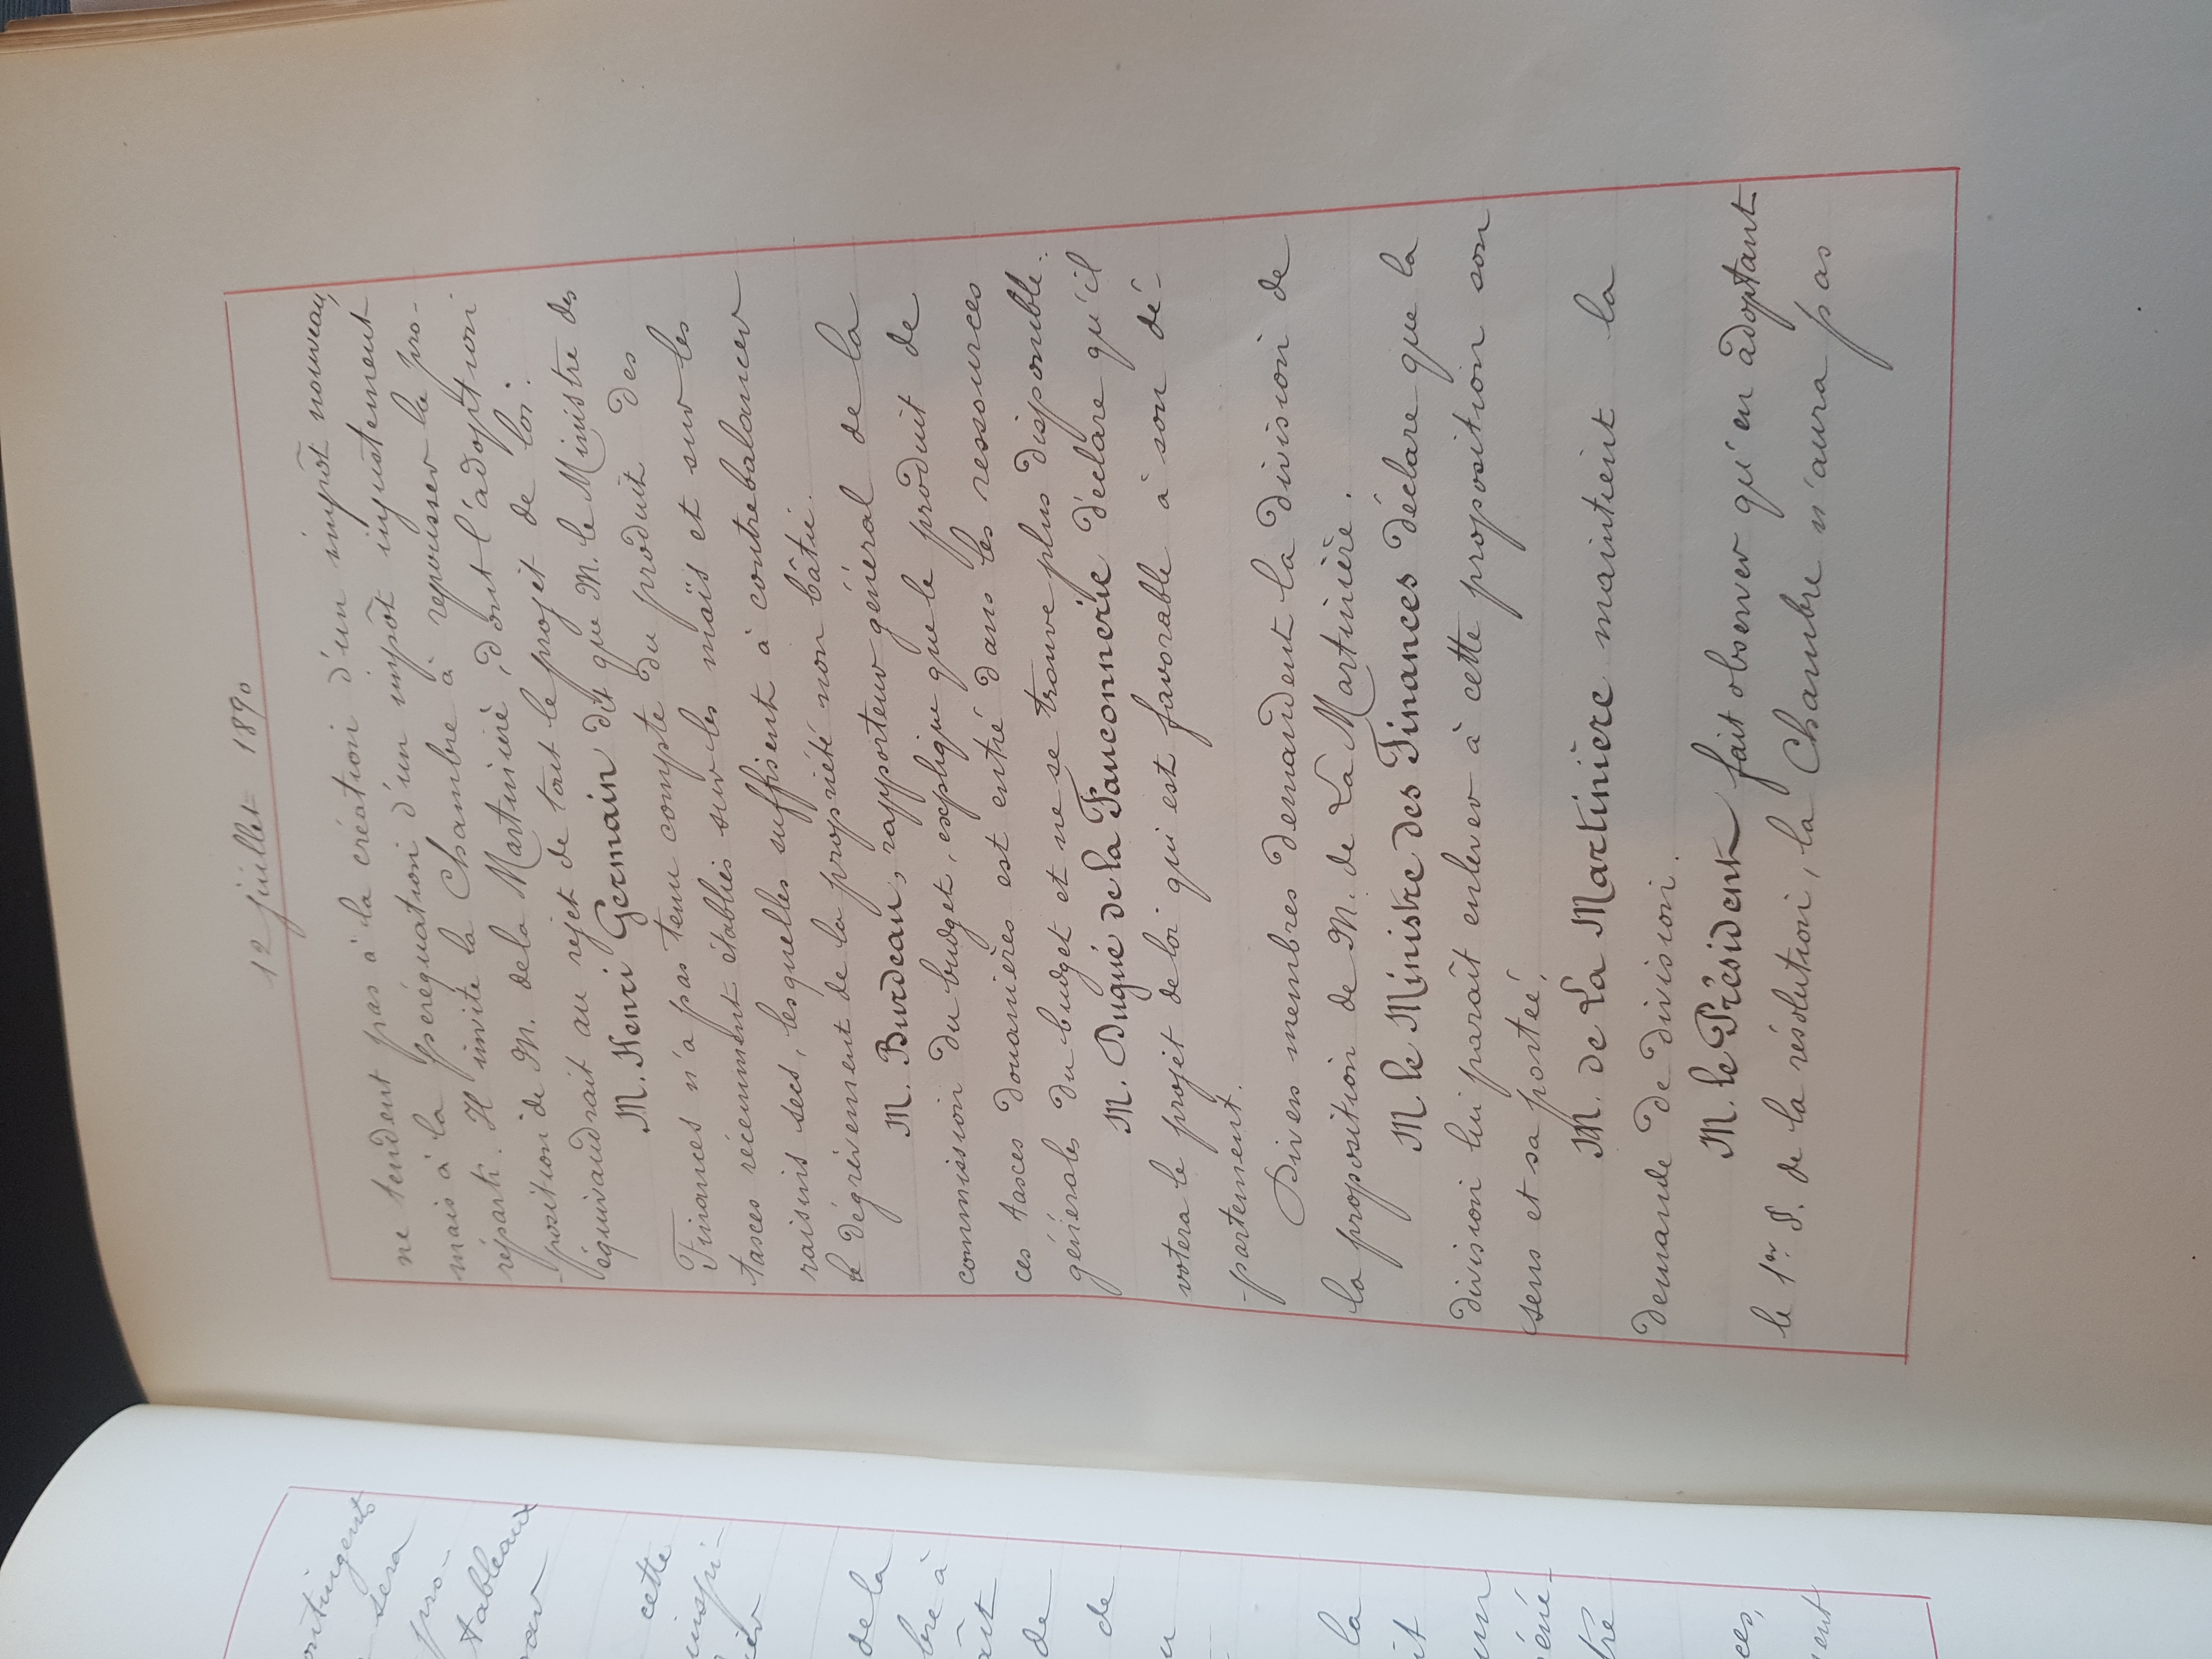 ontingents
sera
pro-
tableaux
cette
inspi-
de la
bre à
aît
de
de
la
it
un
éné-
tre
ces,
ent
12 juillet 1890
ne tendent pas à la création d'un impôt nouveau,
mais à la péréquation d'un impôt injustement
réparti. Il invite la Chambre à repousser la pro-
-position de M. de la Martinière, dont l'adoption
équivaudrait au rejet de tout le projet de loi.
M. Henri Germain dit que M. le Ministre des
Finances n'a pas tenu compte du produit des
taxes récemment établies sur les maïs et sur les
raisins secs, lesquelles suffisent à contrebalancer
le dégrèvement de la propriété non bâtie.
M. Burdeau, rapporteur général de la
commission du budget, explique que le produit de
ces taxes douanières est entré dans les ressources
générales du budget et ne se trouve plus disponible.
M. Dugué de la Fauconnerie déclare qu'il
votera le projet de loi qui est favorable à son dé-
-partement.
Divers membres demandent la division de
la proposition de M. de La Martinière.
M le Ministre des Finances déclare que la
division lui paraît enlever à cette proposition son
sens et sa portée.
M. de La Martinière maintient la
demande de division.
M. le Président fait observer qu'en adoptant
le 1er §. de la résolution, la Chambre n'aura pas